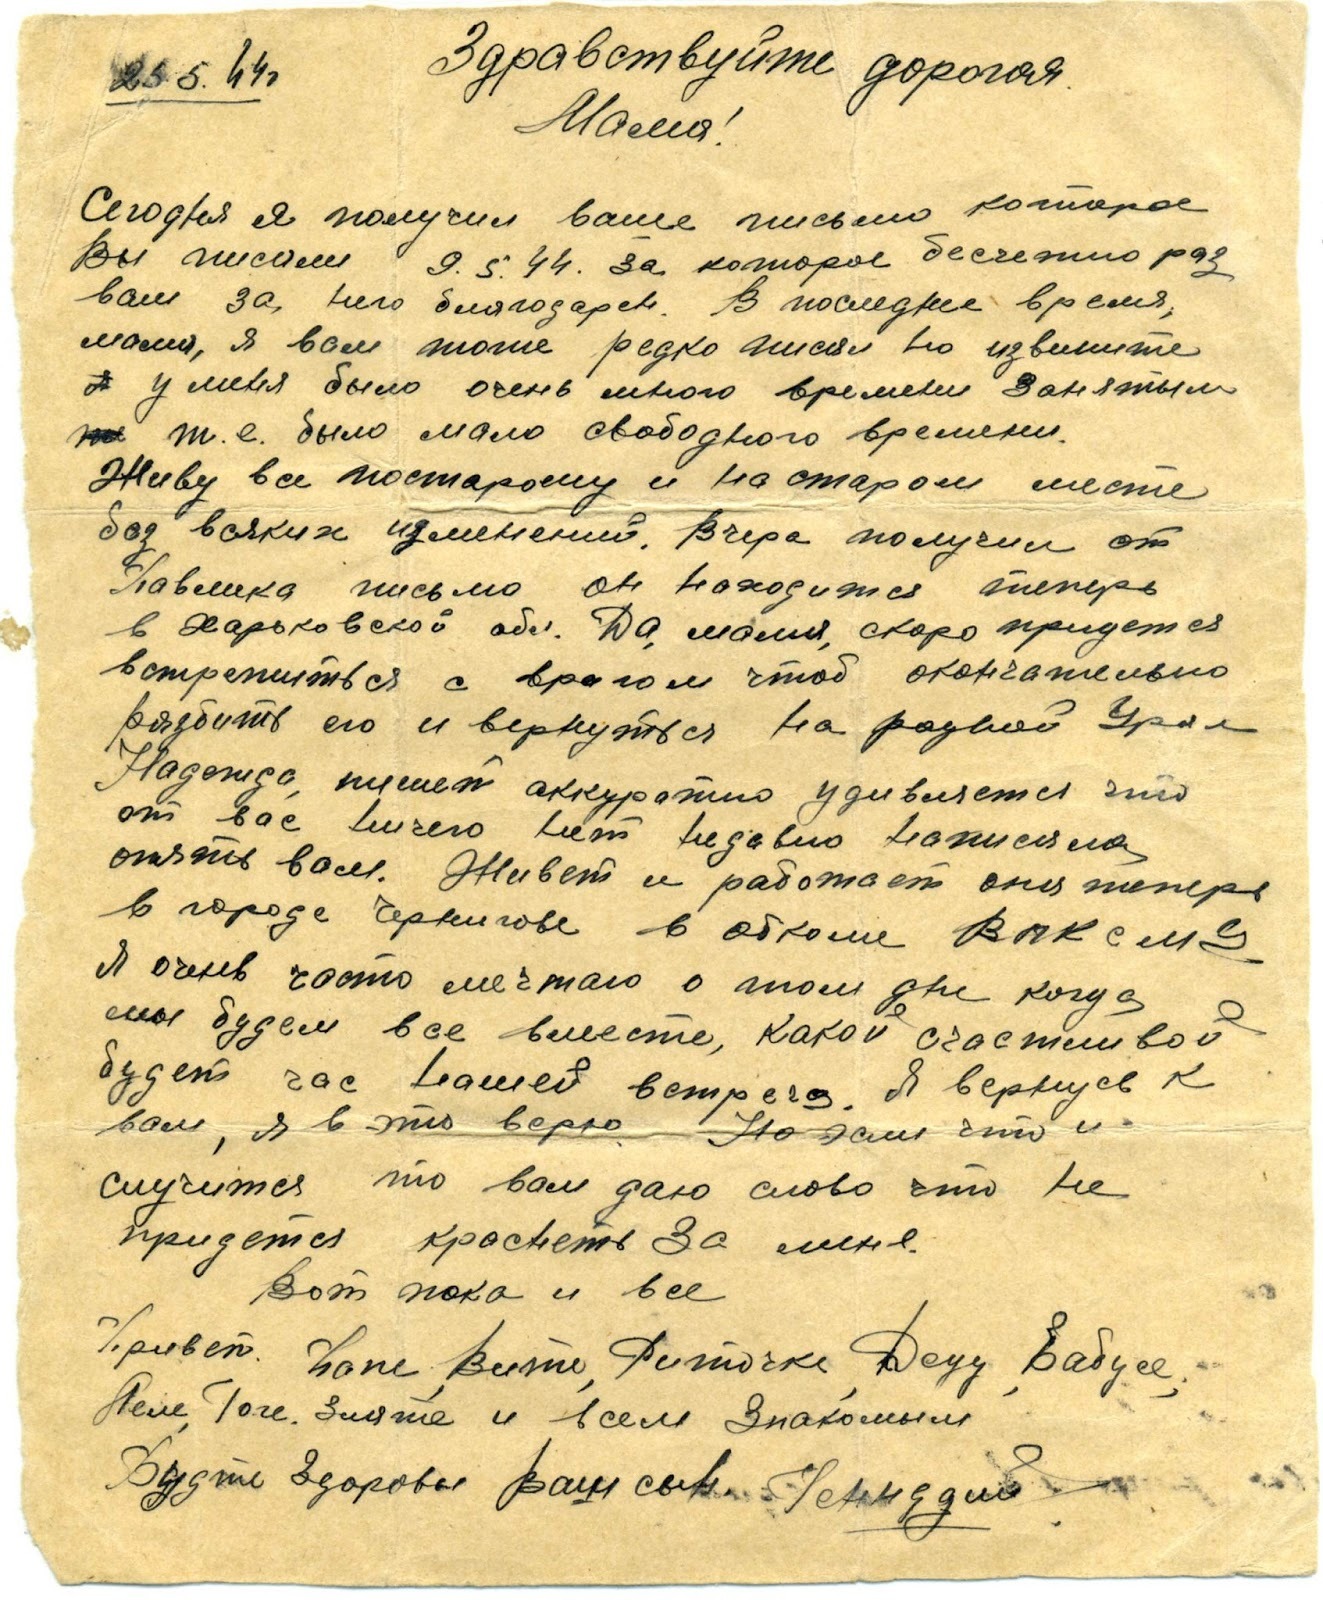 25 5. 44г
Здравствуйте дорогая
Мама!
Сегодня я получил ваше письмо которое
Вы писали 9.5.44. За которое бесчетно раз
вам за него благодарен. В последнее время,
мама, я вам тоже редко писал но извините
у меня было очень много времени занятым
т.е. было мало свободного времени.
Живу все постарому и на старом месте
без всяких изменений. Вчера получил от
Павлика письмо он находится теперь
в Харьковской обл. Да, мама, скоро придется
встретиться с врагом чтоб окончательно
разбить его и вернуться на родной Урал
Надежда, пишет аккуратно удивляется что
от вас ничего нет недавно написала
опять вам. Живет и работает она теперь
в городе Чернигове в обкоме ВЛКСМ
Я очень часто мечтаю о том дне когда
мы будем все вместе, какой счастливой
будет час нашей встречи. Я вернусь к
вам, я в это верю. Но если что и
случится то вам даю слово что не
придется краснеть за меня.
Вот пока и все
Привет. Папе, Вите, Риточке, Деду, Бабусе,
Леле, Тоге. Злате и всем знакомым
Будте здоровы Ваш сын. Геннадий